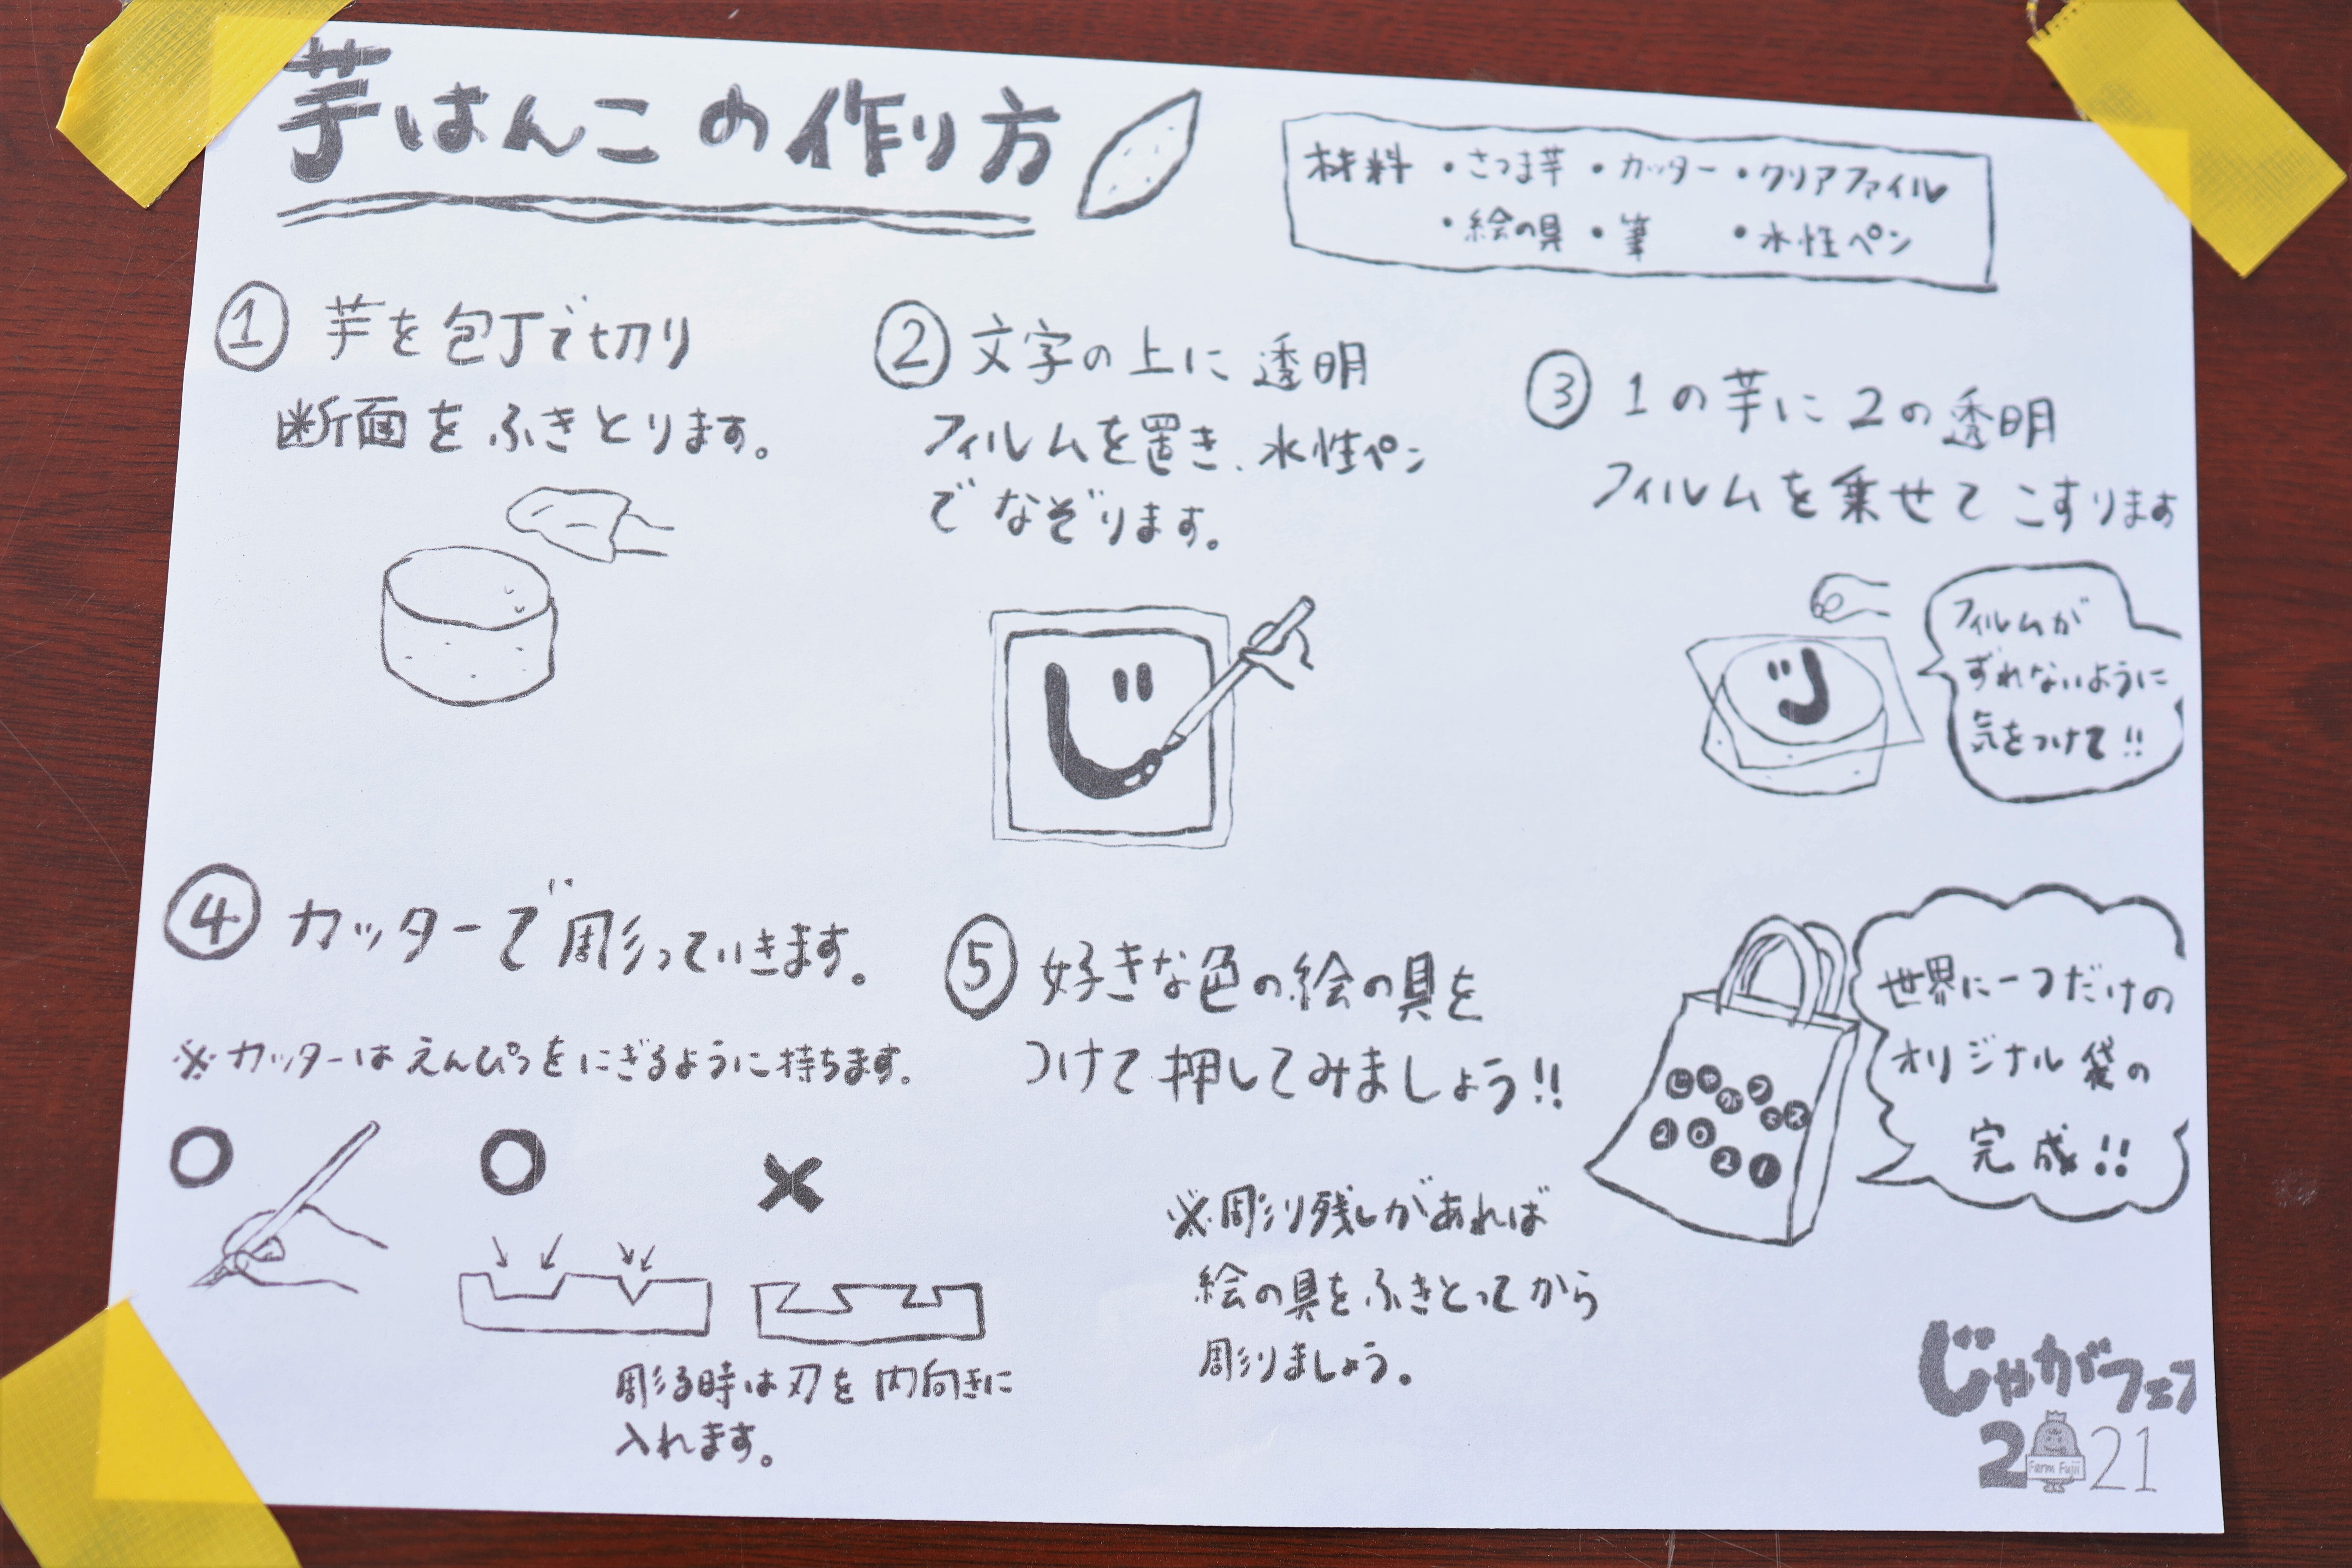 芋はんこの作り方
材料 ・さつま芋 ・カッター ・クリアファイル
・絵の具 ・筆 ・水性ペン
① 芋を包丁で切り
断面をふきとります。
② 文字の上に透明
フィルムを置き、水性ペン
でなぞります。
じ
③ 1の芋に2の透明
フィルムを乗せてこすります
フィルムが
ずれないように
気をつけて!!
④ カッターで彫っていきます。
※カッターはえんぴつをにぎるように持ちます。
彫る時は刃を内向きに
入れます。
⑤ 好きな色の絵の具を
つけて押してみましょう!!
※彫り残しがあれば
絵の具をふきとってから
彫りましょう。
じゃがフェス
2021
世界に一つだけの
オリジナル袋の
完成!!
じゃがフェス
2021
Farm Fujii